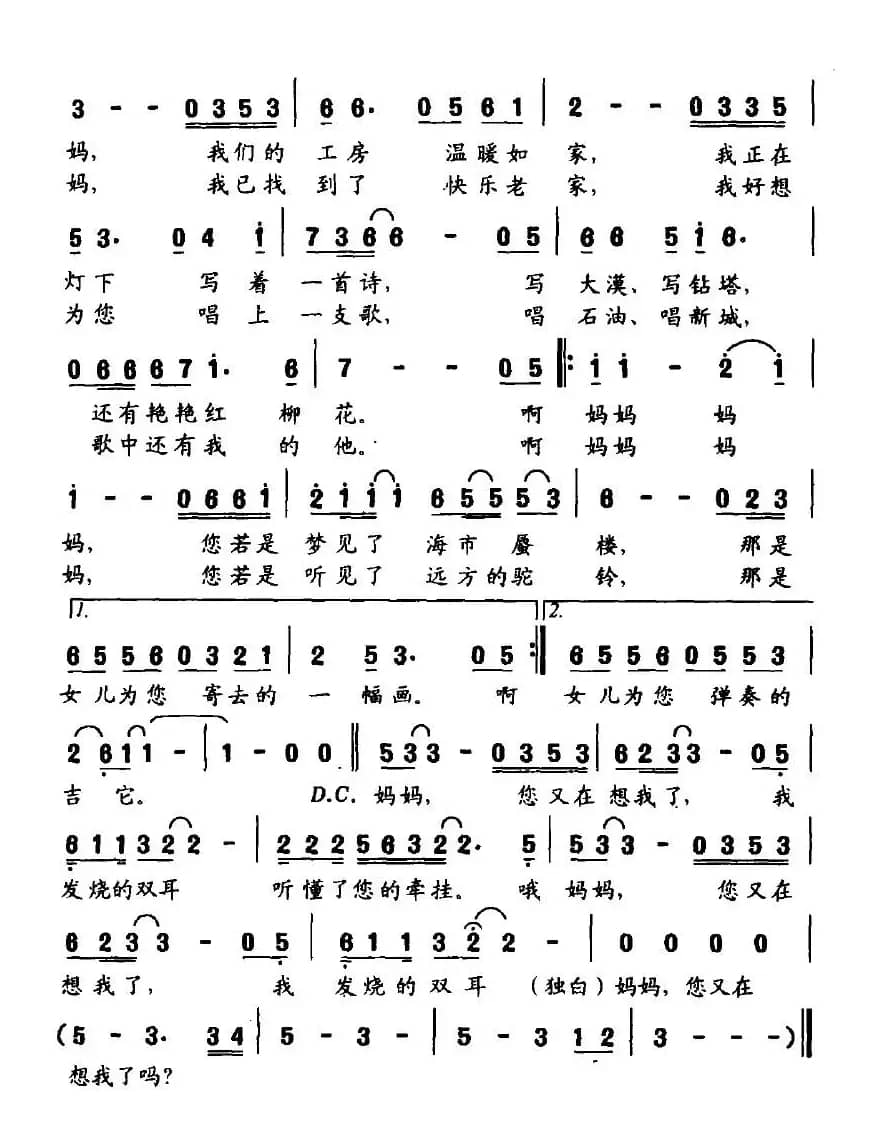 3 - - 0353 | 6 6· 0561 | 2 - - 0335 |
妈, 我们的 工房 温暖如 家, 我正在
妈, 我已找 到了 快乐老 家, 我好想
5 3· 0 4 i | 7366 - 05 | 66 5i6· |
灯下 写着 一首诗, 写 大漠、写钻塔,
为您 唱上 一支歌, 唱 石油、唱新城,
06667i· 6 | 7 - - 05 |: i i - 2 i |
还有艳艳红 柳花。 啊 妈妈 妈
歌中还有我 的他。 啊 妈妈 妈
i - - 066i | 2iii 65553 | 6 - - 023 |
妈, 您若是 梦见了 海市蜃 楼, 那是
妈, 您若是 听见了 远方的驼 铃, 那是
1. 2.
65560321 | 2 53· 05 :| 65560553 |
女儿为您 寄去的 一幅画。 啊 女儿为您 弹奏的
2611 - | 1 - 00 || 533 - 0353 | 6233 - 05 |
吉它。 D.C. 妈妈, 您又在 想我了, 我
611322 - | 22256322· 5 | 533 - 0353 |
发烧的双耳 听懂了您的牵挂。 哦 妈妈, 您又在
6233 - 05 | 611322 - | 0 0 0 0 |
想我了, 我 发烧的双耳 (独白)妈妈,您又在
(5 - 3· 34 | 5 - 3 - | 5 - 3 12 | 3 - - -) ||
想我了吗?